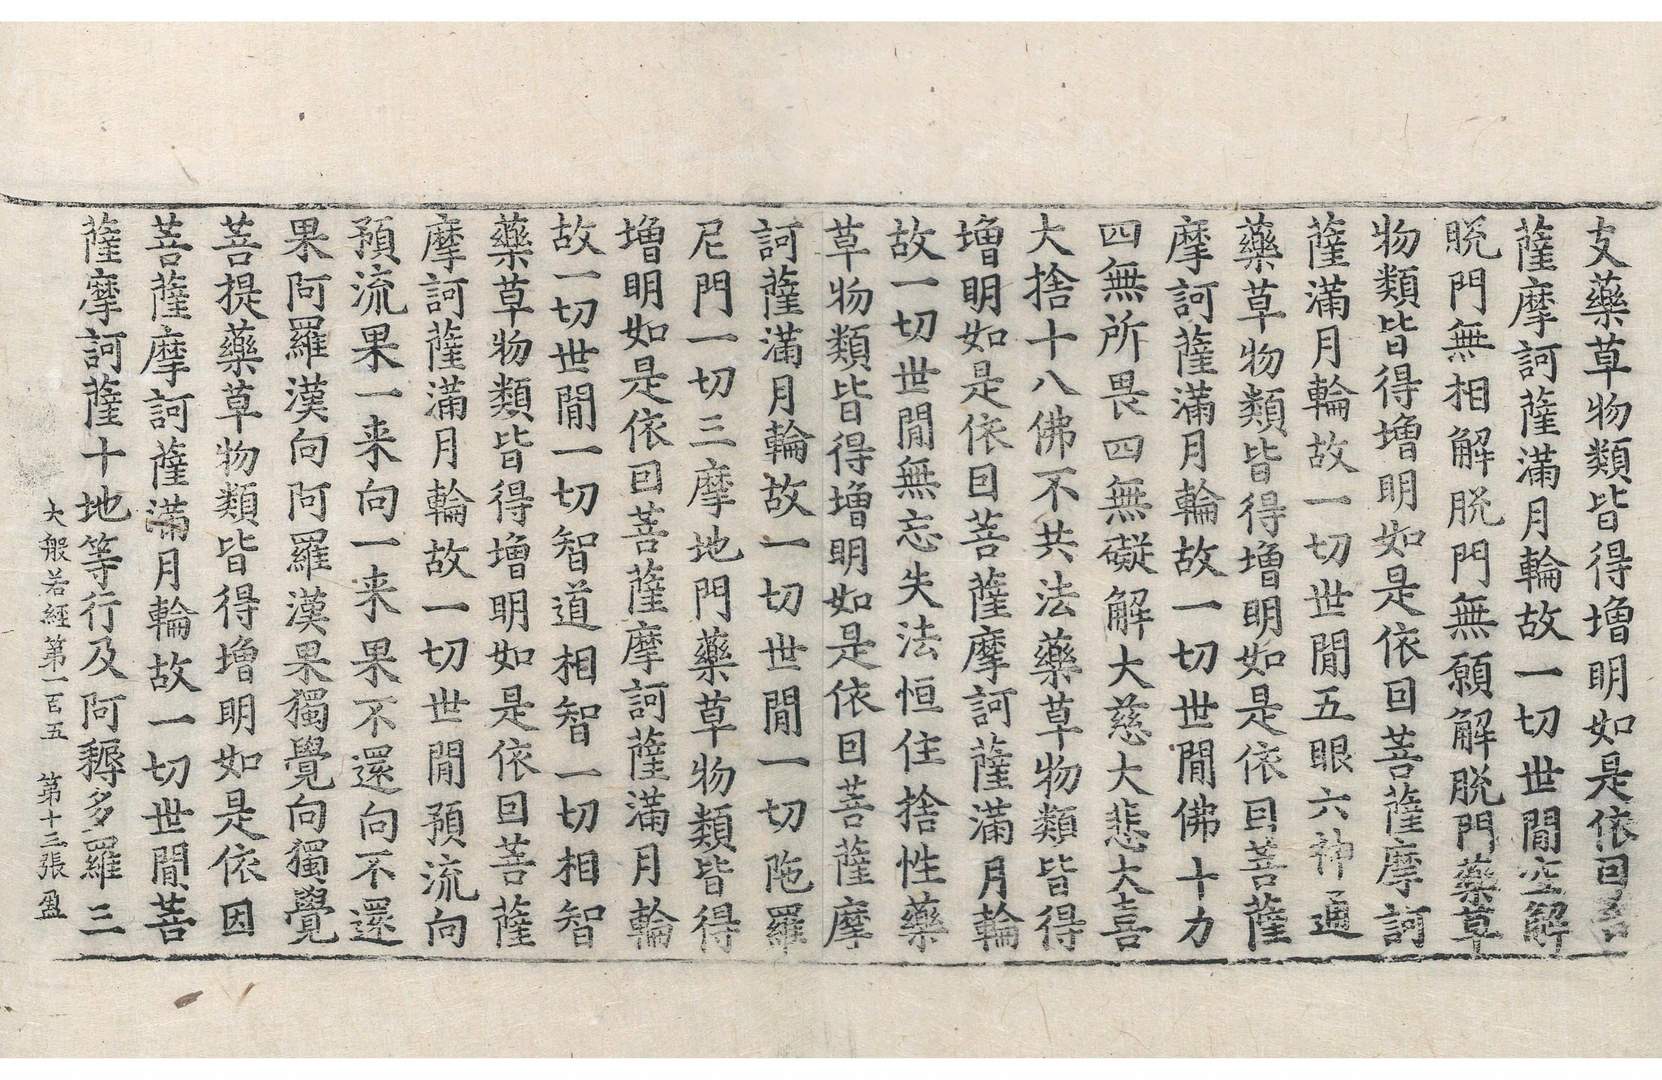 支藥草物類皆得增明如是依因菩
薩摩訶薩滿月輪故一切世閒空解
脫門無相解脫門無願解脫門藥草
物類皆得增明如是依因菩薩摩訶
薩滿月輪故一切世閒五眼六神通
藥草物類皆得增明如是依因菩薩
摩訶薩滿月輪故一切世閒佛十力
四無所畏四無礙解大慈大悲大喜
大捨十八佛不共法藥草物類皆得
增明如是依因菩薩摩訶薩滿月輪
故一切世閒無忘失法恒住捨性藥
草物類皆得增明如是依因菩薩摩
訶薩滿月輪故一切世閒一切陁羅
尼門一切三摩地門藥草物類皆得
增明如是依因菩薩摩訶薩滿月輪
故一切世閒一切智道相智一切相智
藥草物類皆得增明如是依因菩薩
摩訶薩滿月輪故一切世閒預流向
預流果一来向一来果不還向不還
果阿羅漢向阿羅漢果獨覺向獨覺
菩提藥草物類皆得增明如是依因
菩薩摩訶薩滿月輪故一切世閒菩
薩摩訶薩十地等行及阿耨多羅三
大般若經第一百五 第十三張 盈